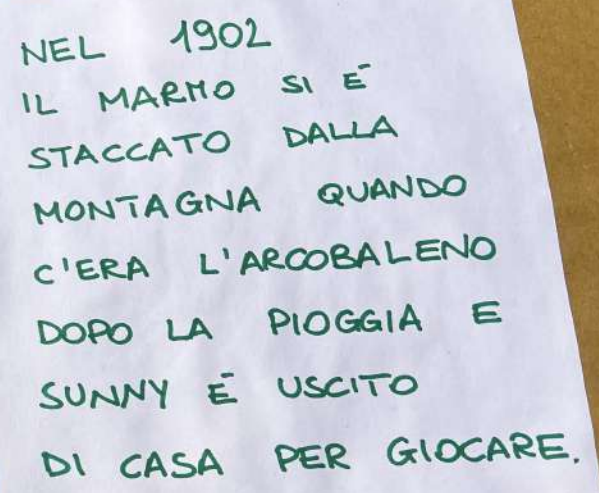 NEL 1902
IL MARMO SI È
STACCATO DALLA
MONTAGNA QUANDO
C'ERA L'ARCOBALENO
DOPO LA PIOGGIA E
SUNNY È USCITO
DI CASA PER GIOCARE.